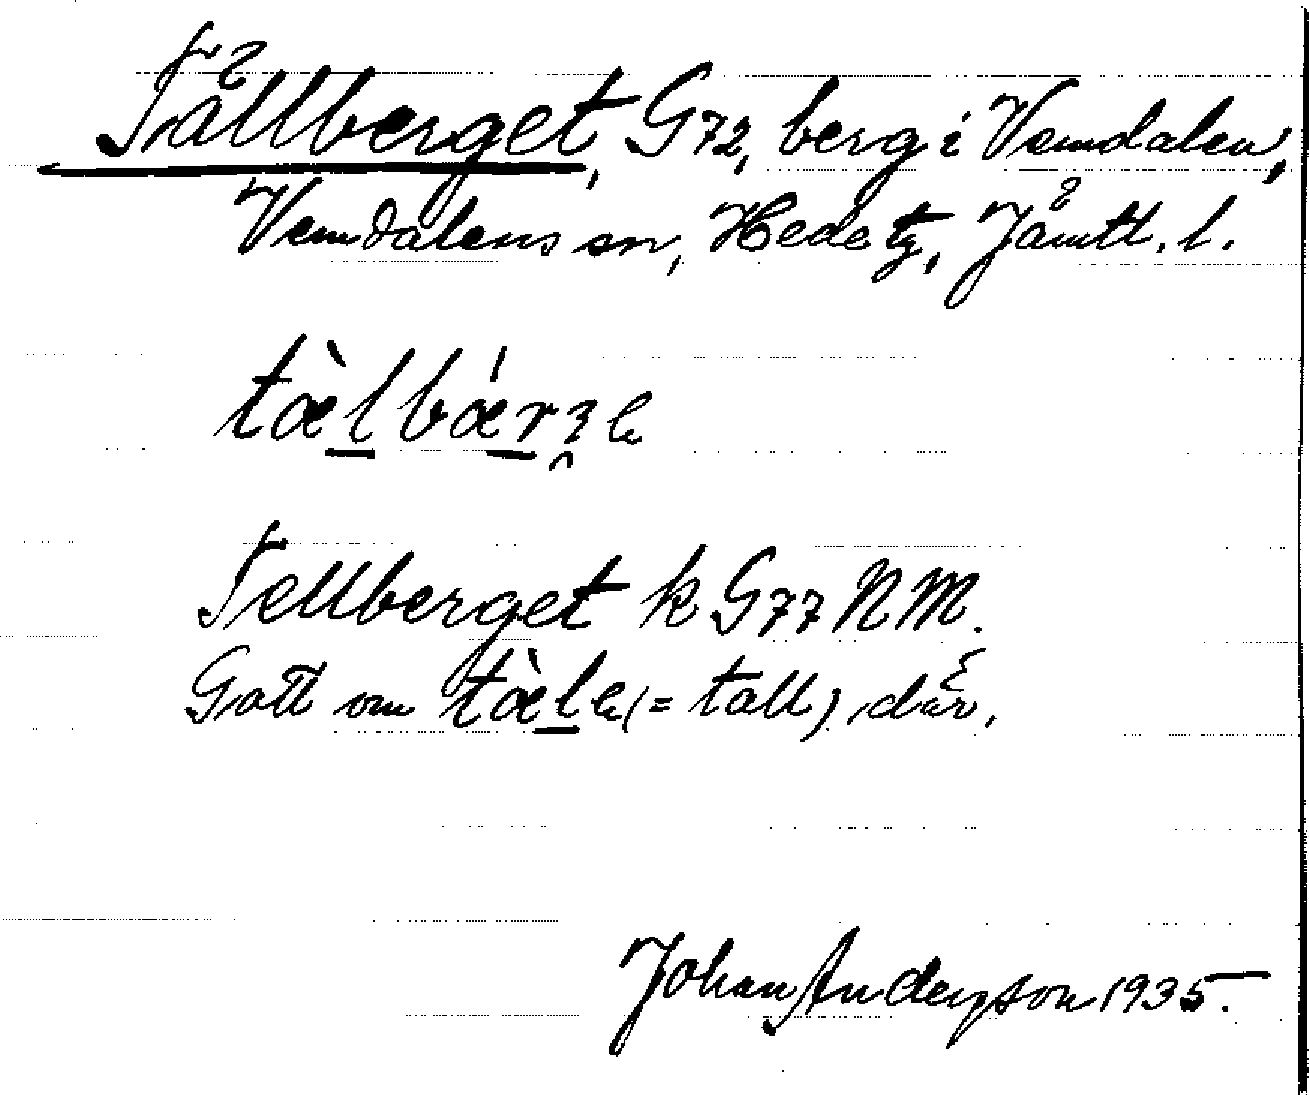 Tällberget, G72, berg i Vemdalen,
Vemdalens sn, Hede tg, Jämtl. l.
tæ̀l̲bǽr̲ʒe
Tellberget k G77 N M.
Gott om tæ̀l̲e (= tall) där.
Johan Anderson 1935.